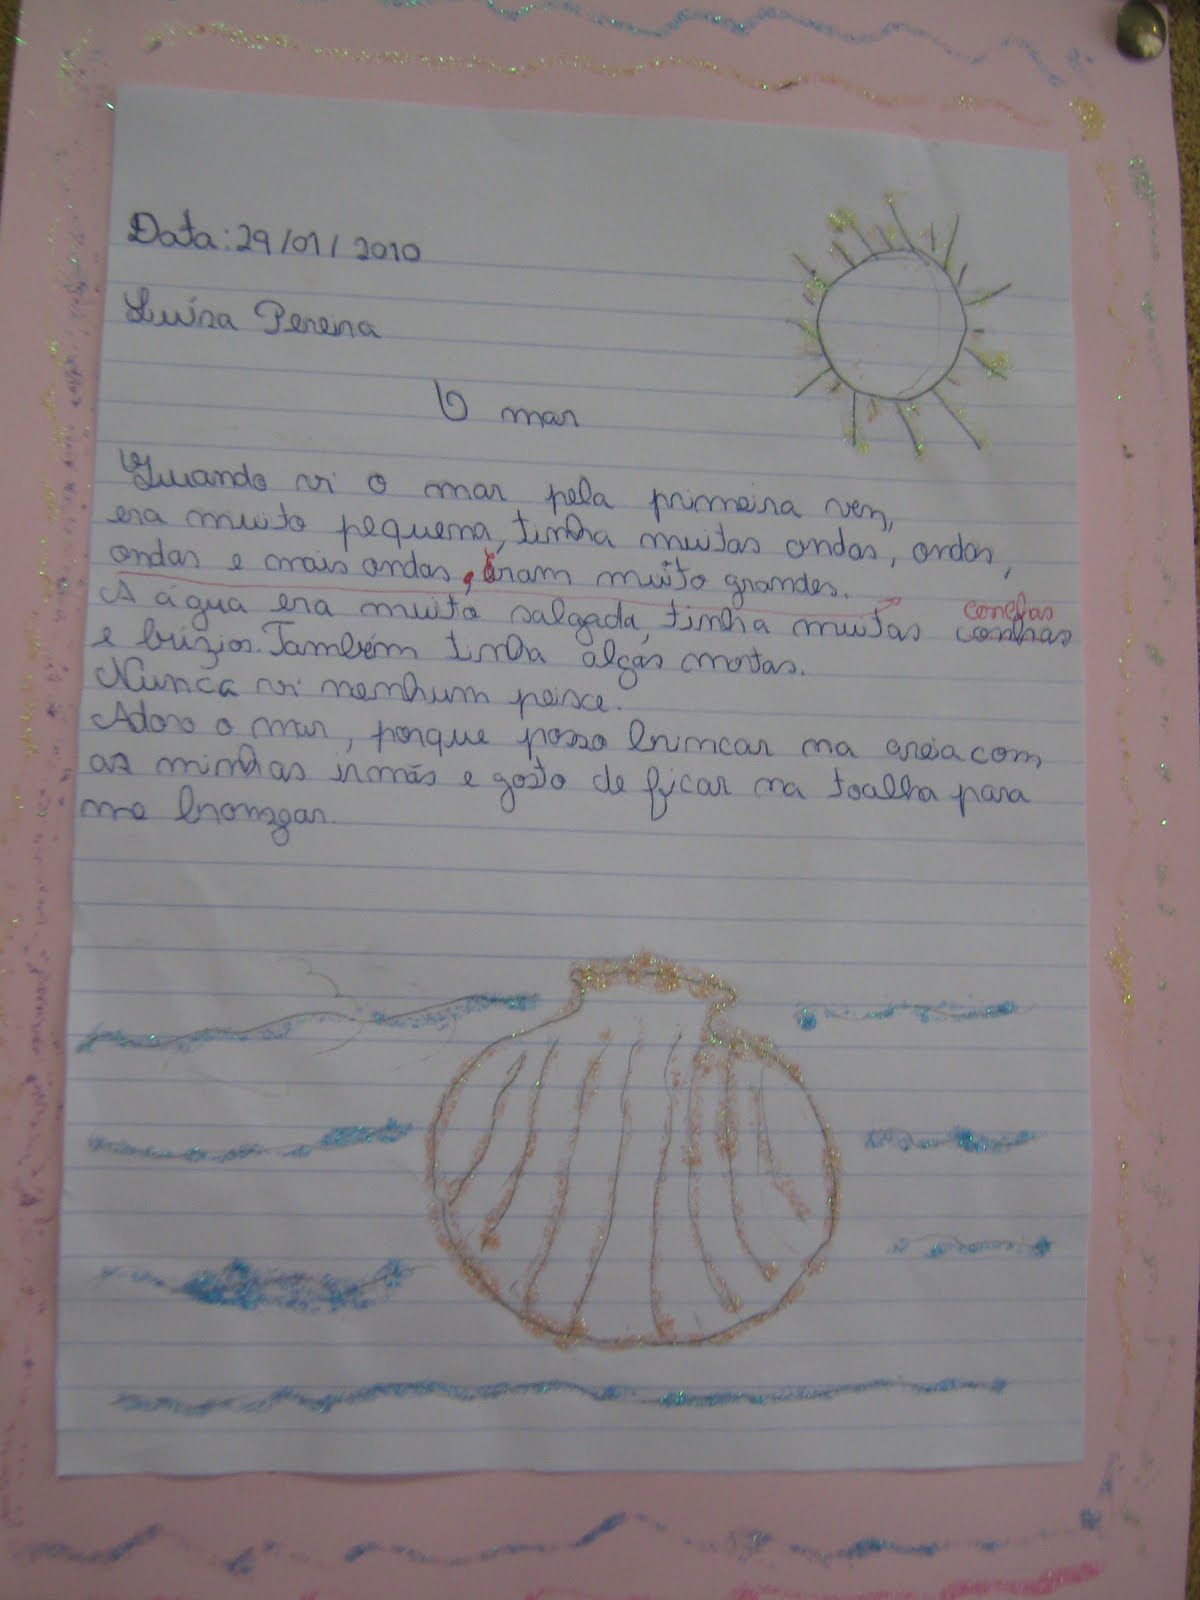 Data: 29/01/2010
Luísa Pereira
O mar
Quando vi o mar pela primeira vez,
era muito pequena, tinha muitas ondas, ondas,
ondas e mais ondas, eram muito grandes.
A água era muito salgada, tinha muitas conchas
conchas
e búzios. Também tinha algas mortas.
Nunca vi nenhum peixe.
Adoro o mar, porque posso brincar na areia com
as minhas irmãs e gosto de ficar na toalha para
me bronzear.